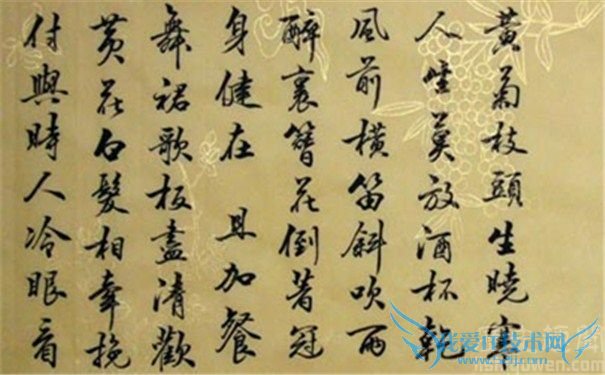 黄菊枝頭生曉寒
人生莫放酒杯乾
風前橫笛斜吹雨
醉裏簪花倒著冠
身健在 且加餐
舞裙歌板盡清歡
黄花白髮相牽挽
付與時人冷眼看
我爱IT技术网